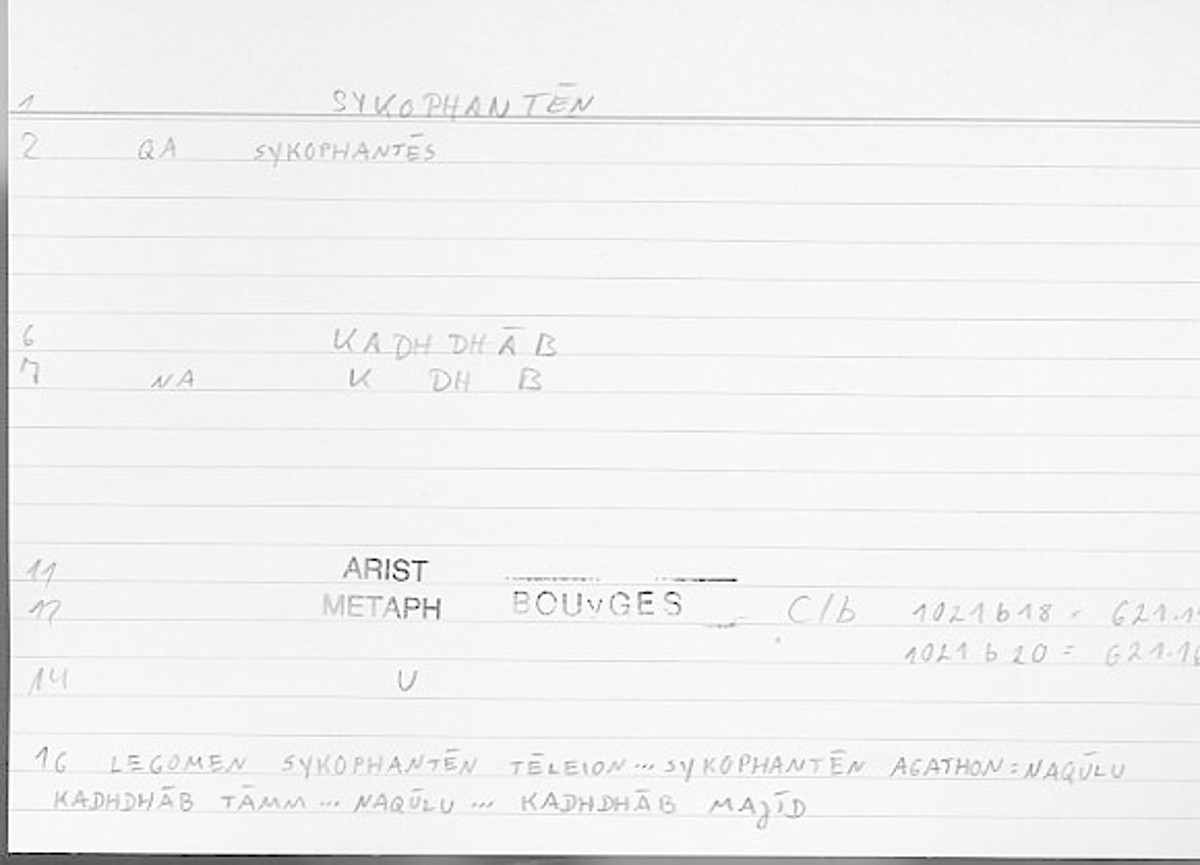 1 SYKOPHANTĒN
2 QA SYKOPHANTĒS
6 KADHDHĀB
7 NA K DH B
11 ARIST
12 METAPH BOUvGES C/b 1021 b 18 = 621.1
1021 b 20 = 621.16
14 U
16 LEGOMEN SYKOPHANTĒN TĒLEION ... SYKOPHANTĒN AGATHON : NAQŪLU
KADHDHĀB TĀMM ... NAQŪLU ... KADHDHĀB MAJĪD